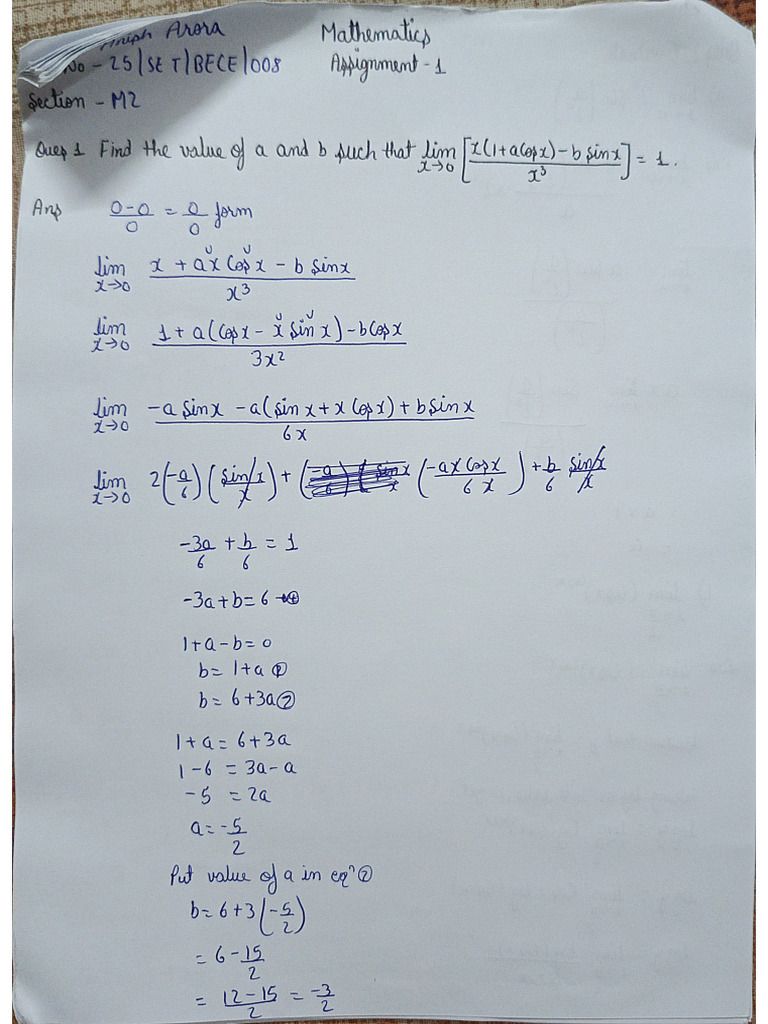 Arora
Mathematics
No - 25/SET/BECE/008
Assignment - 1
Section - M2
Ques 1 Find the value of a and b such that lim x→0 [x(1+acosx) - b sinx / x³] = 1.
Ans 0-0/0 = 0/0 form
lim x→0 x + ax cosx - b sinx / x³
lim x→0 1 + a(cosx - x sinx) - bcosx / 3x²
lim x→0 -a sinx - a(sinx + x cosx) + b sinx / 6x
lim x→0 2(-a/6)(sinx/x) + (-ax cosx / 6x) + b/6 sinx/x
-3a/6 + b/6 = 1
-3a + b = 6
1 + a - b = 0
b = 1 + a ①
b = 6 + 3a ②
1 + a = 6 + 3a
1 - 6 = 3a - a
-5 = 2a
a = -5/2
Put value of a in eqⁿ ②
b = 6 + 3(-5/2)
= 6 - 15/2
= 12 - 15/2 = -3/2